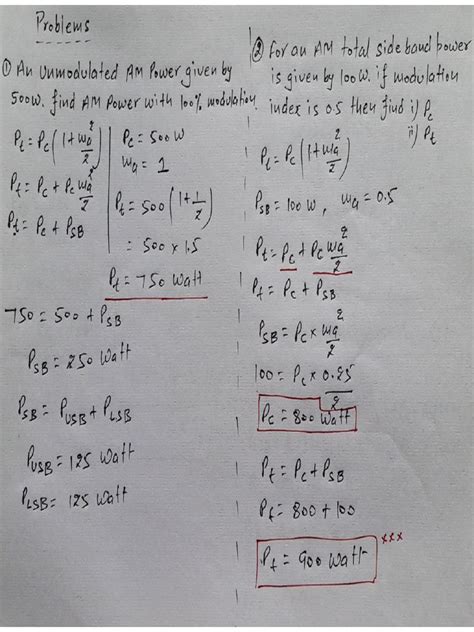 Problems
① An Unmodulated AM Power given by
500W. find AM Power with 100% modulation.
Pt = Pc (1 + ma²/2)
Pt = Pc + Pc ma²/2
Pt = Pc + PSB
Pc = 500 W
ma = 1
Pt = 500 (1 + 1/2)
= 500 × 1.5
Pt = 750 Watt
750 = 500 + PSB
PSB = 250 Watt
PSB = PUSB + PLSB
PUSB = 125 Watt
PLSB = 125 Watt
② For an AM total side band power
is given by 100W. if modulation
index is 0.5 then find i) Pc
ii) Pt
Pt = Pc (1 + ma²/2)
PSB = 100 W, ma = 0.5
Pt = Pc + Pc ma²/2
Pt = Pc + PSB
PSB = Pc × ma²/2
100 = Pc × 0.25/2
Pc = 800 Watt
Pt = Pc + PSB
Pt = 800 + 100
Pt = 900 Watt xxx